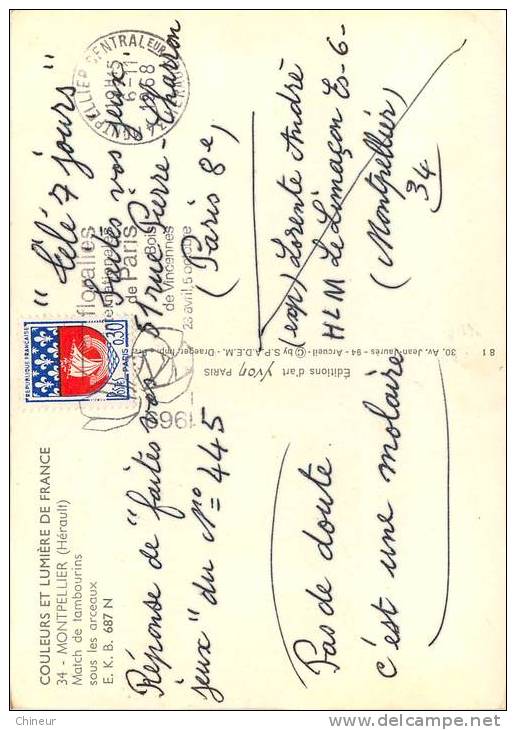 COULEURS ET LUMIÈRE DE FRANCE
34 - MONTPELLIER (Hérault)
Match de tambourins
sous les arceaux
E. K. B. 687 N
Réponse de "faites vos
jeux" du N° 445
Pas de doute
c'est une molaire
Éditions d'art Yvon
30, Av. Jean-Jaurès - 94 - Arcueil - © by S.P.A.D.E.M. - Draeger Imp.
PARIS
8 1
REPUBLIQUE FRANÇAISE
0,30
POSTES
PARIS
1969
floralies
internationales
de Paris
Bois
de Vincennes
23 avril, 5 octobre
MONTPELLIER CENTRALEUR
19H15
6-11
1968
34 HERAULT
"Télé 7 jours"
Faites vos jeux
61 rue Pierre-Charron
(Paris 8e)
(exp) Lorente André
HLM Le Limaçon Es-6-
(Montpellier)
34
Chineur
www.delcampe.net